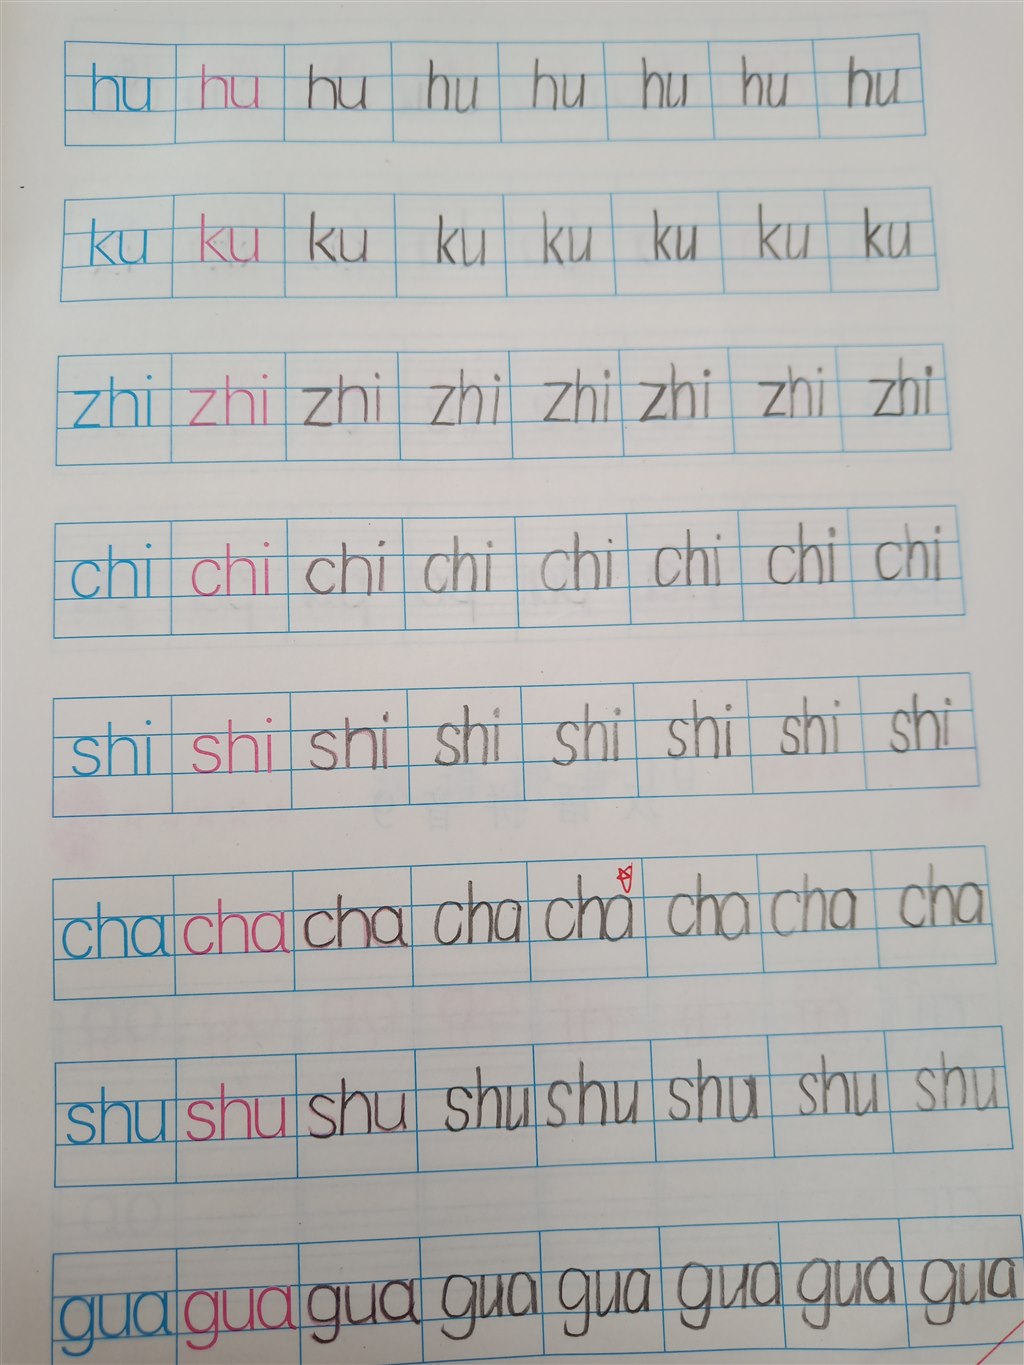 hu hu hu hu hu hu hu hu
ku ku ku ku ku ku ku ku
zhi zhi zhi zhi zhi zhi zhi zhi
chi chi chi chi chi chi chi chi
shi shi shi shi shi shi shi shi
cha cha cha cha cha cha cha cha
shu shu shu shu shu shu shu shu
gua gua gua gua gua gua gua gua